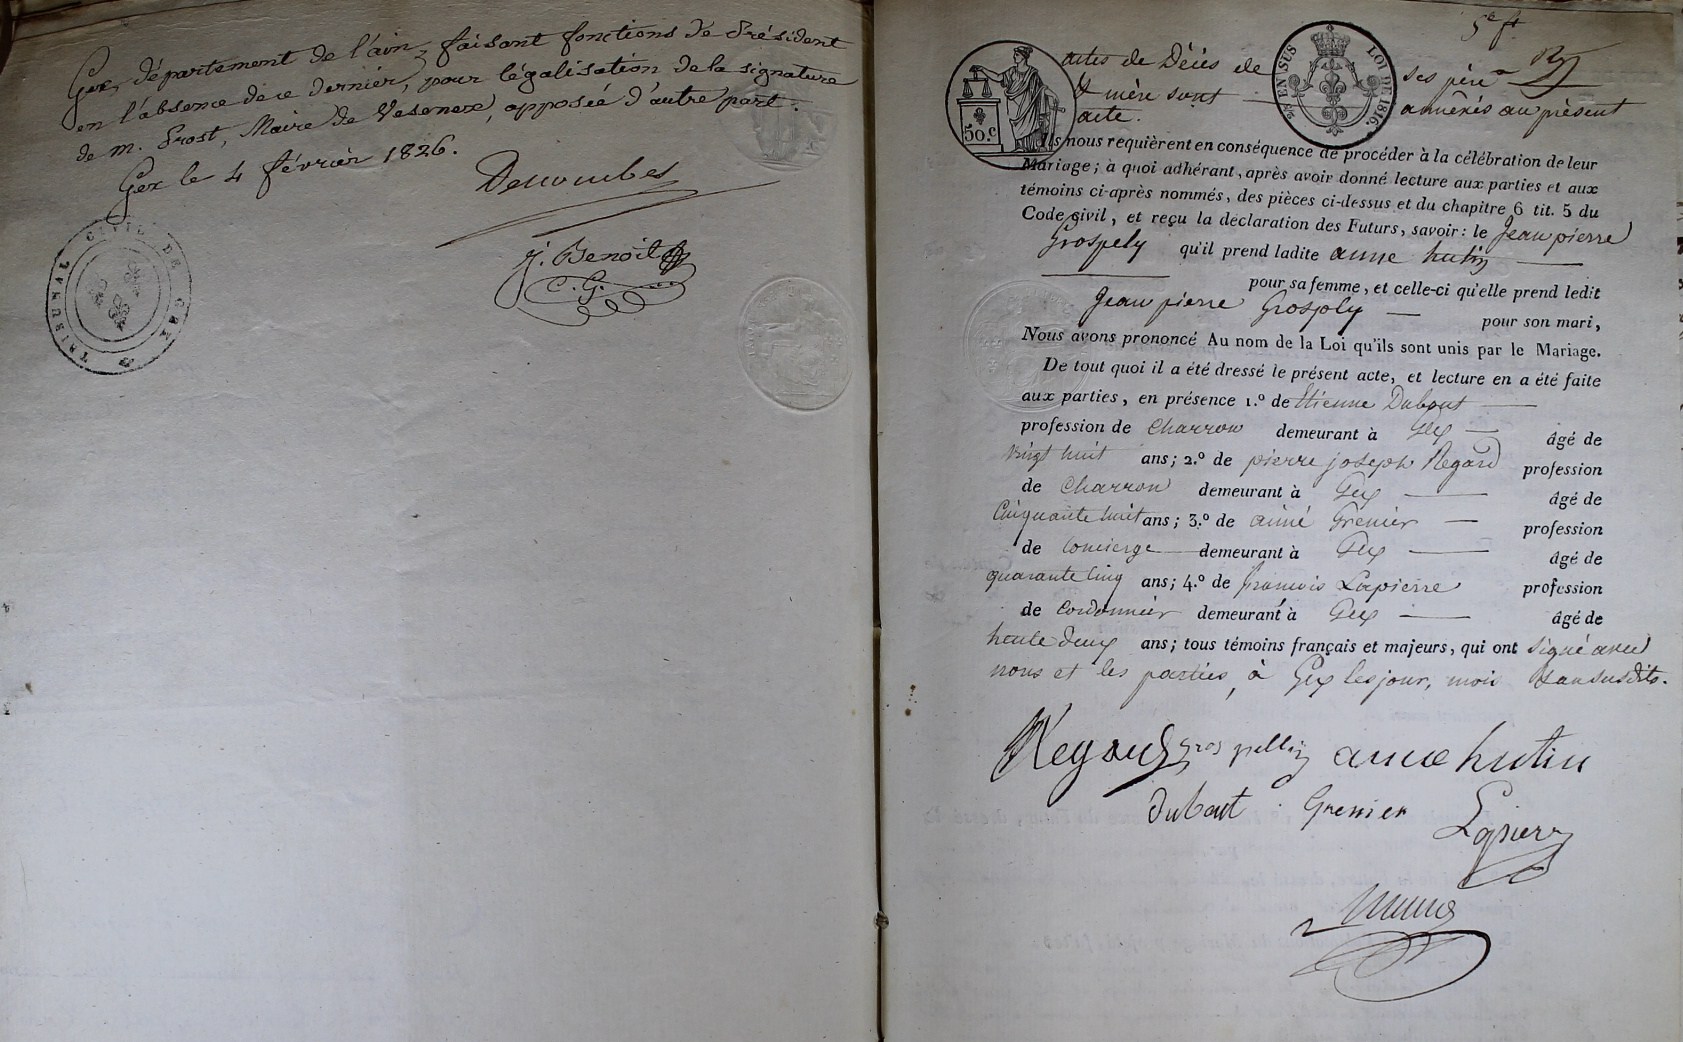 Gex, département de l'ain, faisant fonctions de Président
en l'absence de ce dernier, pour légalisation de la signature
de m. Prost, Maire de Vesenex, apposée d'autre part.
Gex le 4 février 1826.
Desrombes
J. Benoit
C. G.
TRIBUNAL CIVIL DE GEX
5e ft
actes de Décès de ses père
& mère sont annéxés au présent
acte.
50.c
EN SUS LOI DE 1816.
Ils nous requièrent en conséquence de procéder à la célébration de leur
Mariage ; à quoi adhérant, après avoir donné lecture aux parties et aux
témoins ci-après nommés, des pièces ci-dessus et du chapitre 6 tit. 5 du
Code civil, et reçu la déclaration des Futurs, savoir : le Jean pierre
Grospely qu'il prend ladite anne hutin
pour sa femme, et celle-ci qu'elle prend ledit
Jean pierre Grospely pour son mari,
Nous avons prononcé Au nom de la Loi qu'ils sont unis par le Mariage.
De tout quoi il a été dressé le présent acte, et lecture en a été faite
aux parties, en présence 1.º de Etienne Dubout
profession de Charron demeurant à Gex âgé de
vingt huit ans ; 2.º de pierre joseph Regard profession
de Charron demeurant à Gex âgé de
Cinquante huit ans ; 3.º de aimé Grenier profession
de Concierge demeurant à Gex âgé de
quarante Cinq ans ; 4.º de françois Lapierre profession
de Cordonnier demeurant à Gex âgé de
trente deux ans ; tous témoins français et majeurs, qui ont signé avec
nous et les parties, à Gex les jour, mois & an susdits.
Regard gros pelliy anne hutin
Dubout Grenier Lapierre